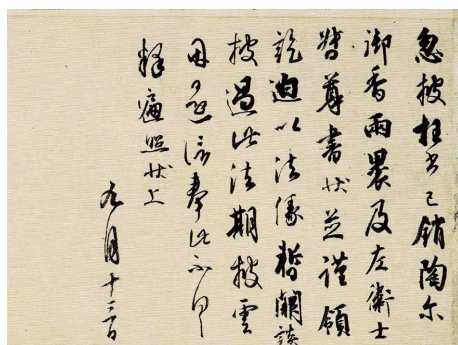 忽披枉書已銷陶尓
御香兩裹及左衛士
督尊書状並謹領
訖迫以法縁暫闕談
披過此法期披雲
因還信奉此不具
釋遍照状上
九月十三日